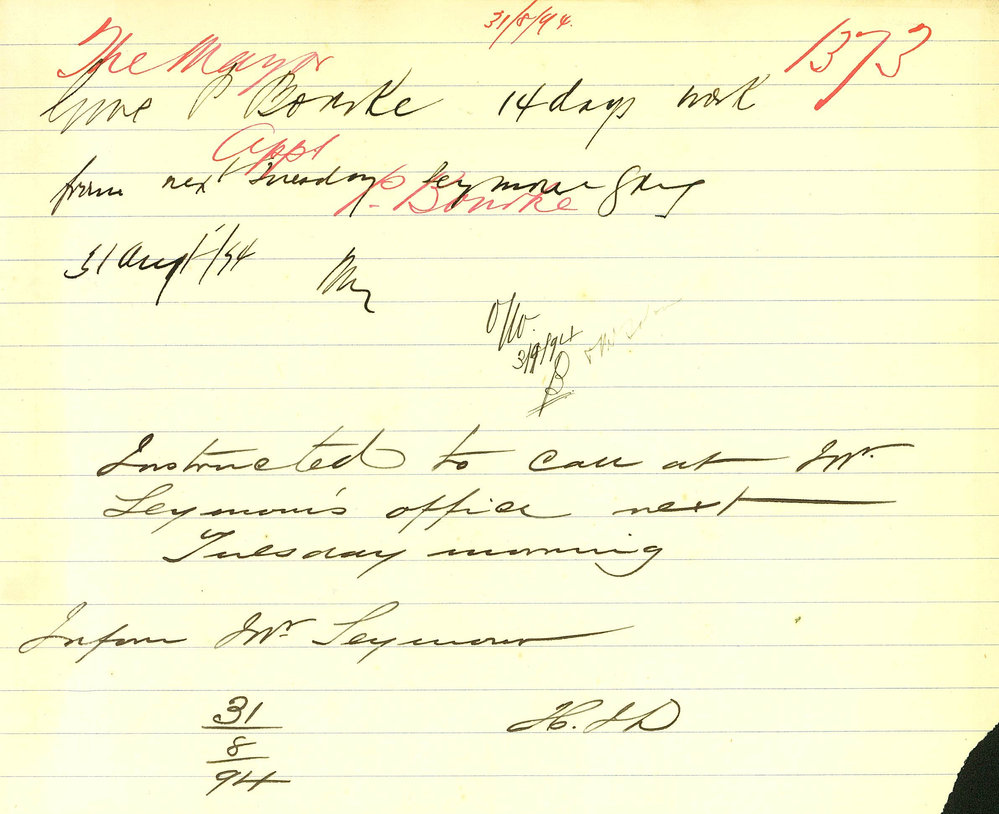 31/8/94.
The Mayor
1373
Give P Bourke 14 days work
Appt
from next Tuesday Seymour gang
P. Bourke
31 Aug/94
3/9/94
Instructed to call at Mr.
Seymour's office next
Tuesday morning
Inform Mr Seymour
31
8
94
H.J.D